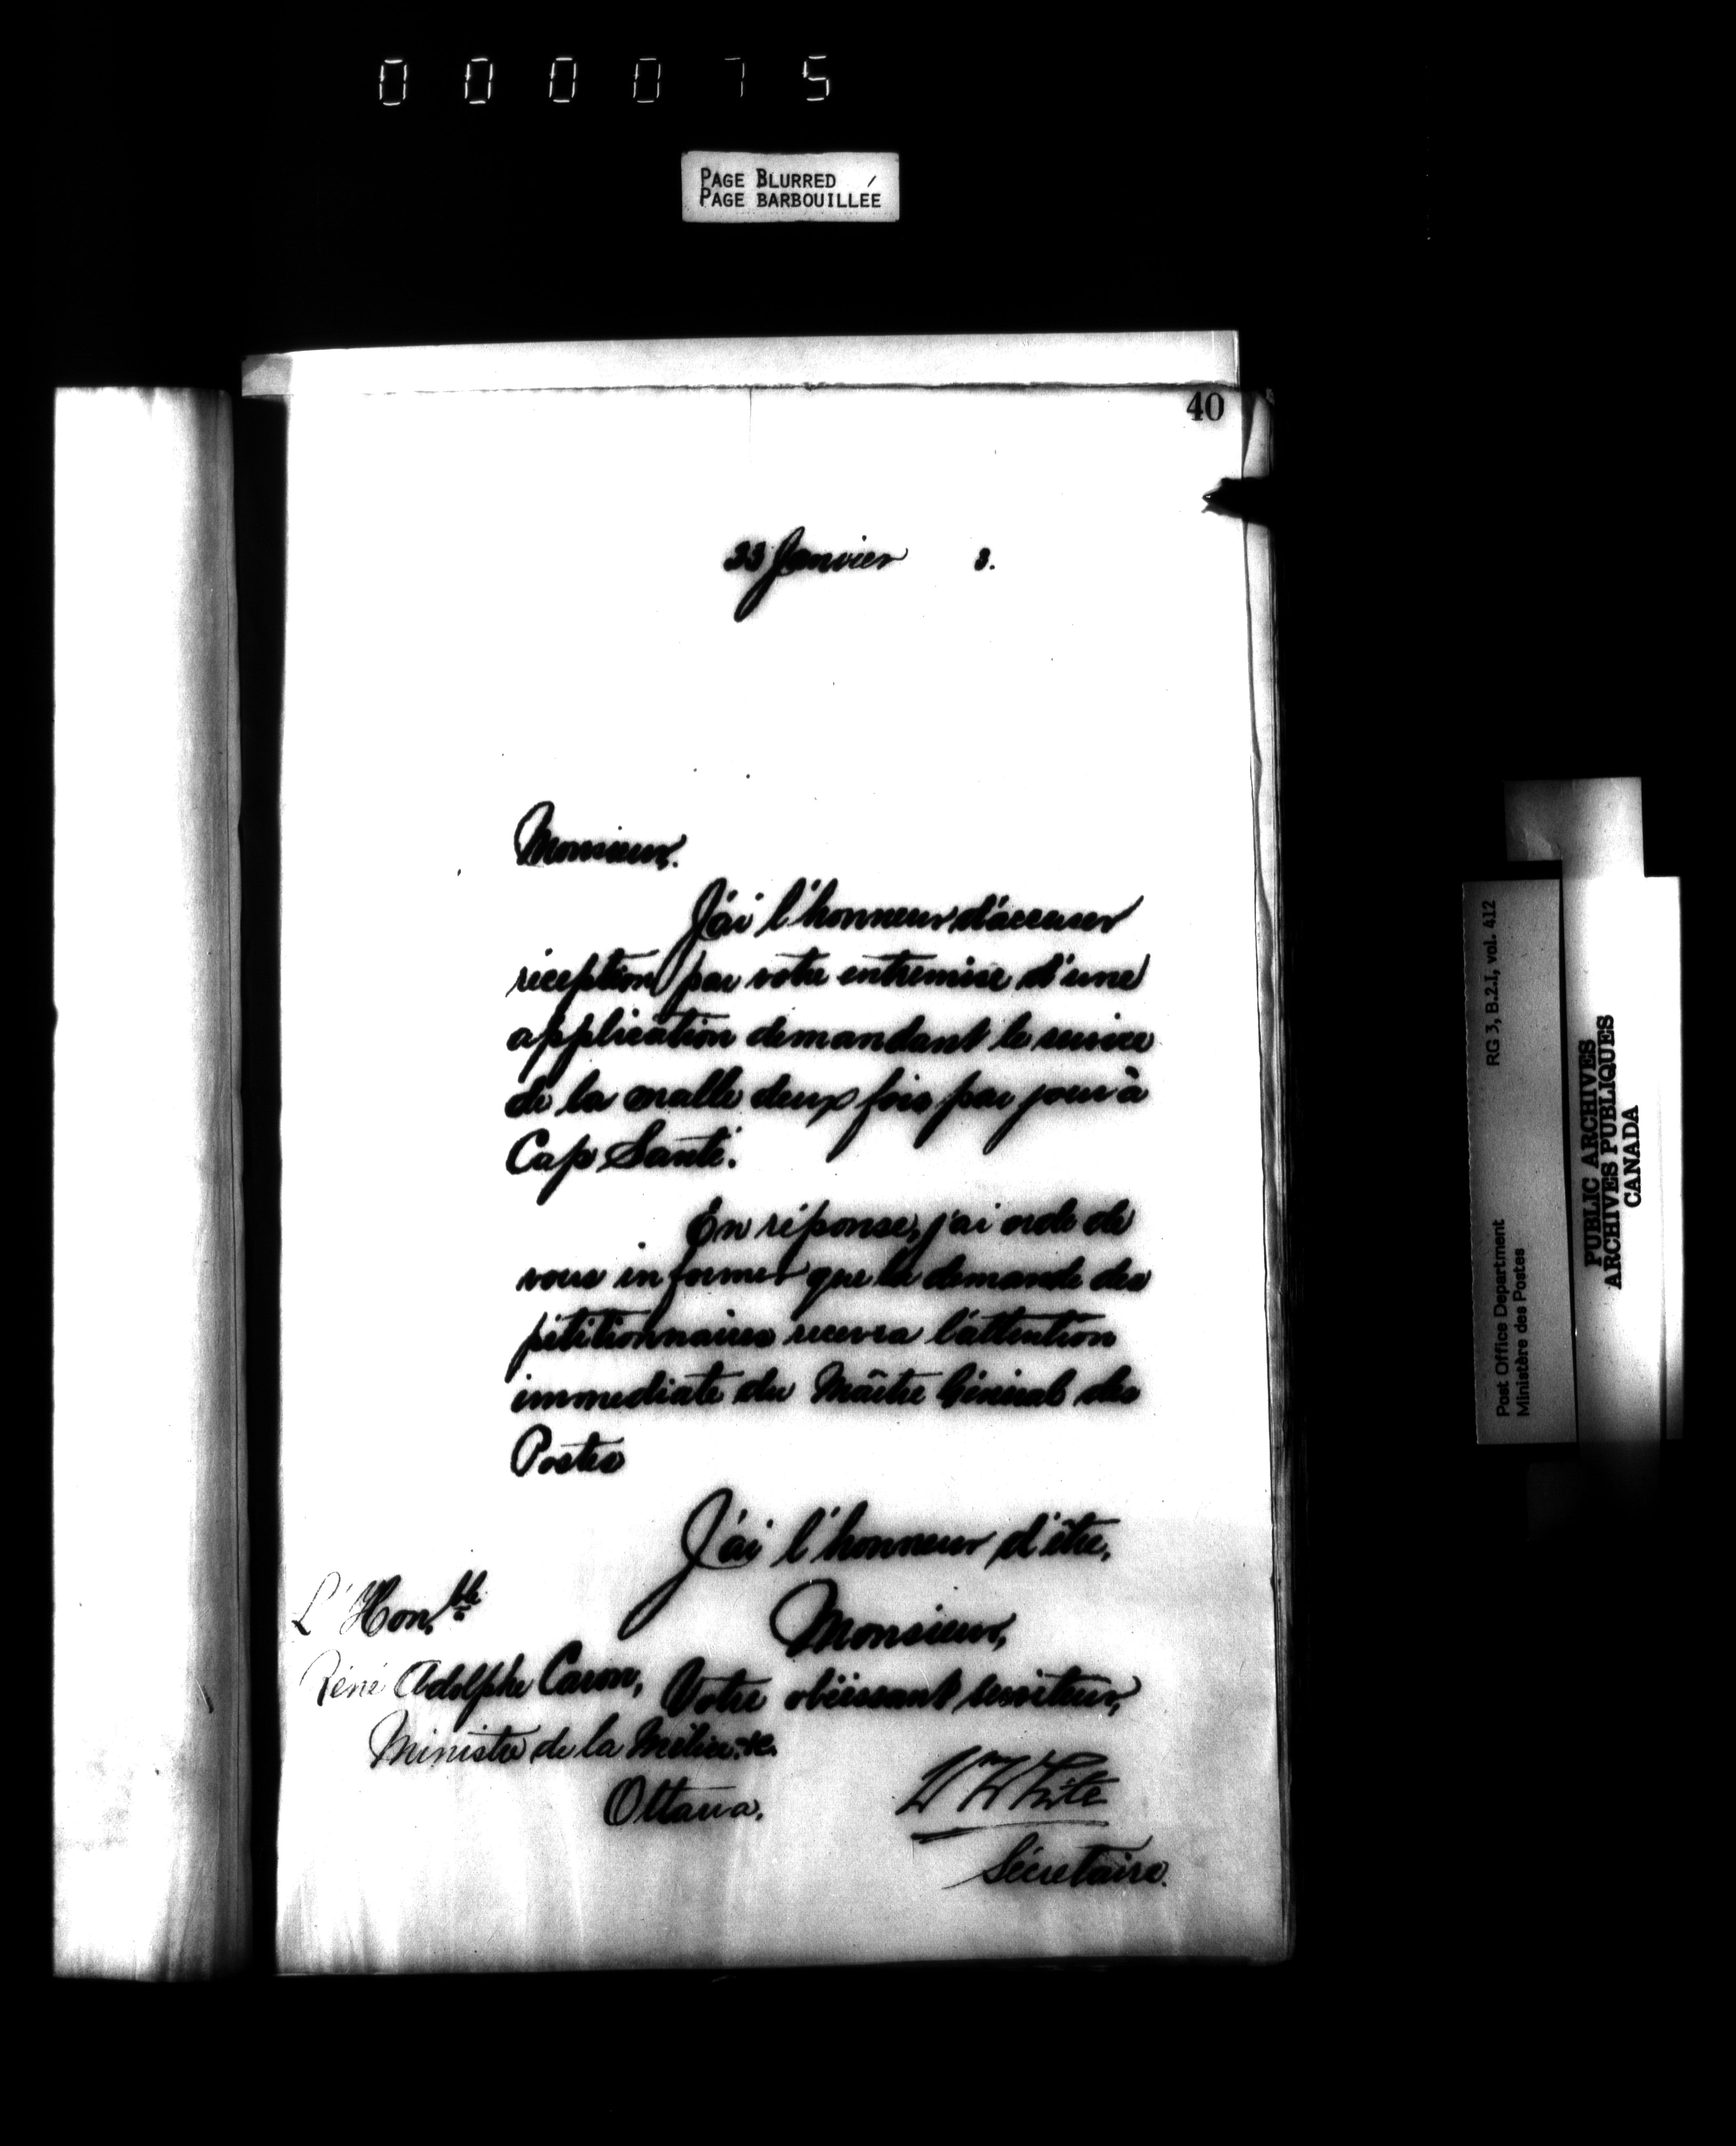 000075
PAGE BLURRED
PAGE BARBOUILLÉE
40
23 Janvier 3.
Monsieur.
J'ai l'honneur d'accuser
réception par votre entremise d'une
application demandant le service
de la malle deux fois par jour à
Cap Santé.
En réponse, j'ai ordre de
vous informer que la demande des
pétitionnaires recevra l'attention
immediate du Maître Général des
Postes
J'ai l'honneur d'être,
Monsieur,
Votre obéissant serviteur,
Wm White
Sécretaire.
L'Hon.ble
Réné Adolphe Caron,
Ministre de la Milice &c.
Ottawa.
Post Office Department
Ministère des Postes
RG 3, B.2.I, vol. 412
PUBLIC ARCHIVES
ARCHIVES PUBLIQUES
CANADA